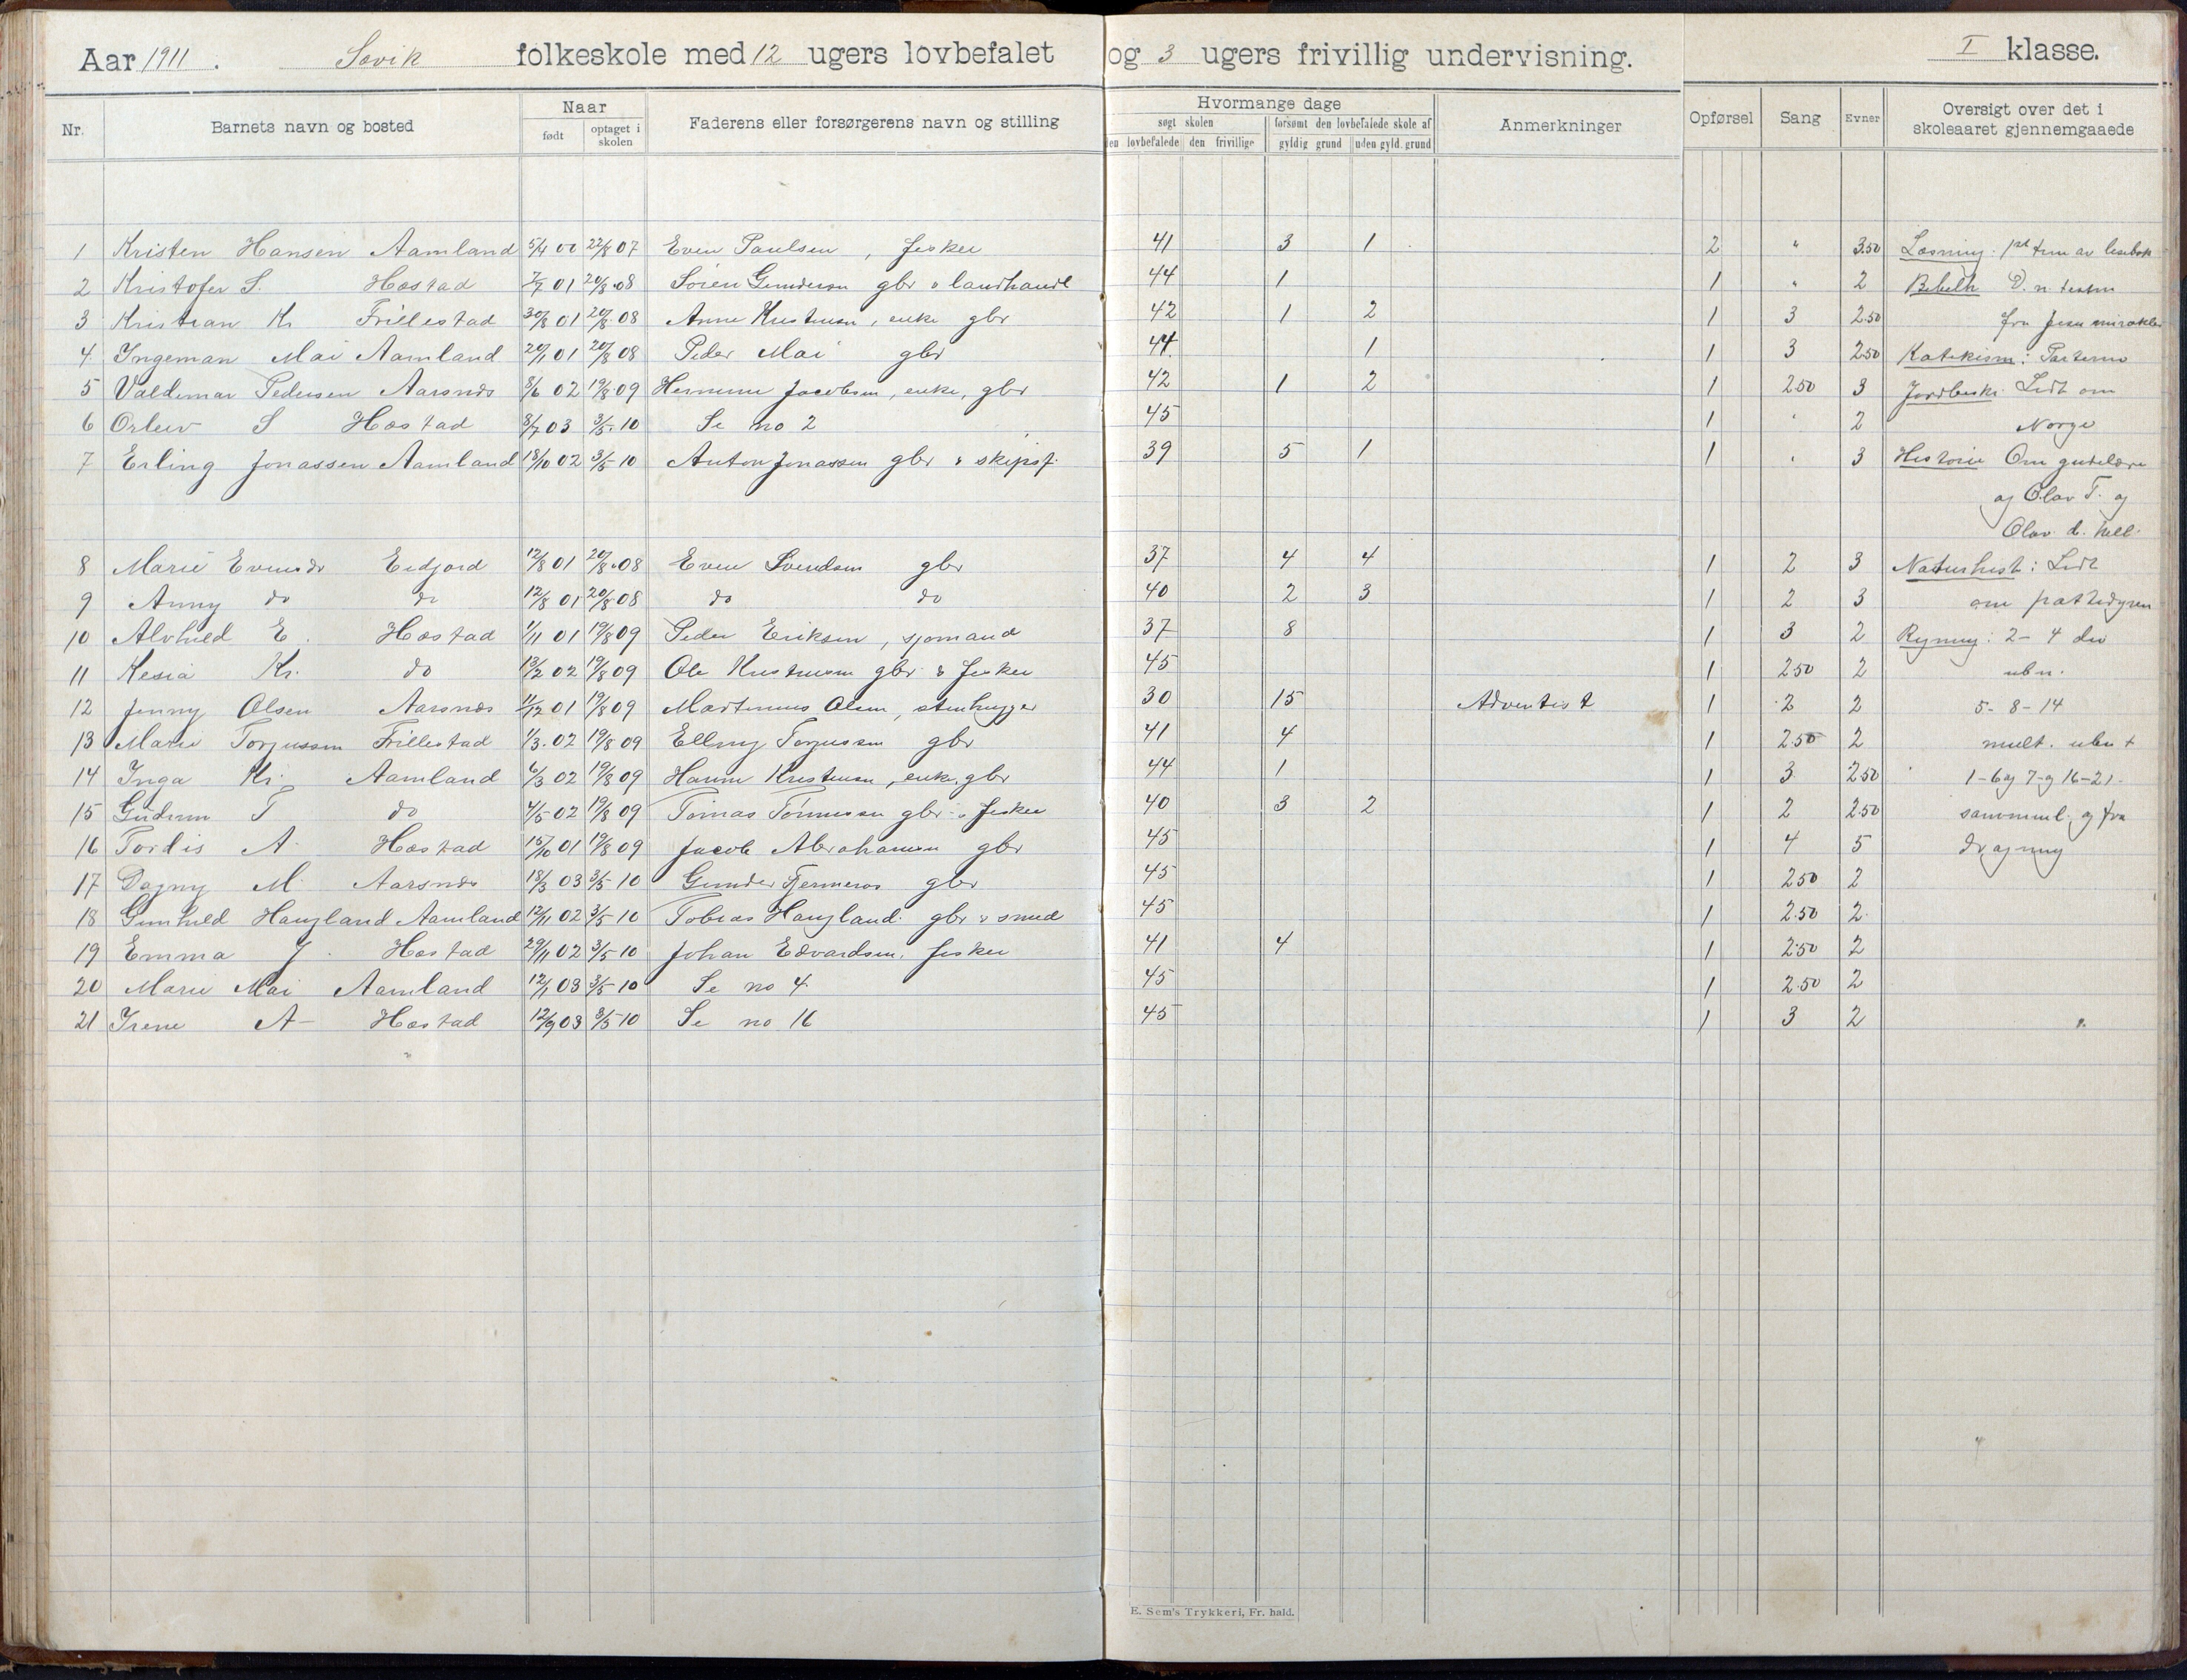 Aar 1911. Søvik folkeskole med 12 ugers lovbefalet og 3 ugers frivillig undervisning. I klasse.
Nr. Barnets navn og bosted Naar født optaget i skolen Faderens eller forsørgerens navn og stilling Hvormange dage søgt skolen den lovbefalede den frivillige forsømt den lovbefalede skole af gyldig grund uden gyld. grund Anmerkninger Opførsel Sang Evner Oversigt over det i skoleaaret gjennemgaaede
1 Kristen Hansen Aamland 5/4 00 22/8 07 Even Paulsen, fisker 41 3 1 2 " 3.50 Læsning: 1ste trin av læsebok
2 Kristofer S. Høstad 7/7 01 20/8 08 Søren Gundersen gbr & landhandl 44 1 1 " 2 Bibelh D. n. testm
3 Kristian Kr Frillestad 30/8 01 20/8 08 Anne Kristensen, enke gbr 42 1 2 1 3 2.50 fra Jesu mirakler
4 Ingeman Mai Aamland 20/1 01 20/8 08 Peder Mai gbr 44 1 1 3 2.50 Katekism: Parterne
5 Valdemar Pedersen Aarsnes 8/6 02 19/8 09 Jacobsen, enke, gbr 42 1 2 1 2.50 3 Jordbeskr. Lidt om
6 Orleiv S Høstad 8/7 03 3/5 10 Se no 2 45 1 " 2 Norge
7 Erling Jonassen Aamland 18/10 02 3/5 10 Anton Jonassen gbr & skipsf. 39 5 1 1 " 3 Historie Om gudelære
og Olav T. og
Olav d. hell.
8 Marie Evensdr Eidjord 12/8 01 20/8 08 Even Svendsen gbr 37 4 4 1 2 3 Naturhist: Lidt
9 Anny do do 12/8 01 20/8 08 do do 40 2 3 1 2 3 om pattedyren
10 Alvhild E. Høstad 1/11 01 19/8 09 Peder Eriksen, sjømand 37 8 1 3 2 Regning: 2-4 div
11 Kesia Kr. do 13/2 02 19/8 09 Ole Kristensen gbr & fisker 45 1 2.50 2 ubn.
12 Jenny Olsen Aarsnes 11/12 01 19/8 09 Martinius Olsen, stenhugger 30 15 Adventist 1 2 2 5-8-14
13 Marie Torjussen Frillestad 1/3 02 19/8 09 Elling Torjussen gbr 41 4 1 2.50 2 mult. ubn +
14 Inga Kr. Aamland 6/3 02 19/8 09 Hanne Kristensen, enke, gbr 44 1 1 3 2.50 1-6 og 7-9 16-21.
15 Gudrun T do 4/5 02 19/8 09 Tomas Tønnessen gbr & fisker 40 3 2 1 2 2.50 sammenl. og fra
16 Tordis A. Høstad 15/10 01 19/8 09 Jacob Abrahamsen gbr 45 1 4 5 dragning
17 Dagny M. Aarsnes 18/3 03 3/5 10 Gunder Fjermeros gbr 45 1 2.50 2
18 Gunhild Haugland Aamland 12/11 02 3/5 10 Tobias Haugland gbr & smed 45 1 2.50 2
19 Emma J. Høstad 29/11 02 3/5 10 Johan Edvardsen, fisker 41 4 1 2.50 2
20 Marie Mai Aamland 12/1 03 3/5 10 Se no 4 45 1 2.50 2
21 Irene A- Høstad 12/9 03 3/5 10 Se no 16 45 1 3 2
E. Sem's Trykkeri, Fr. hald.